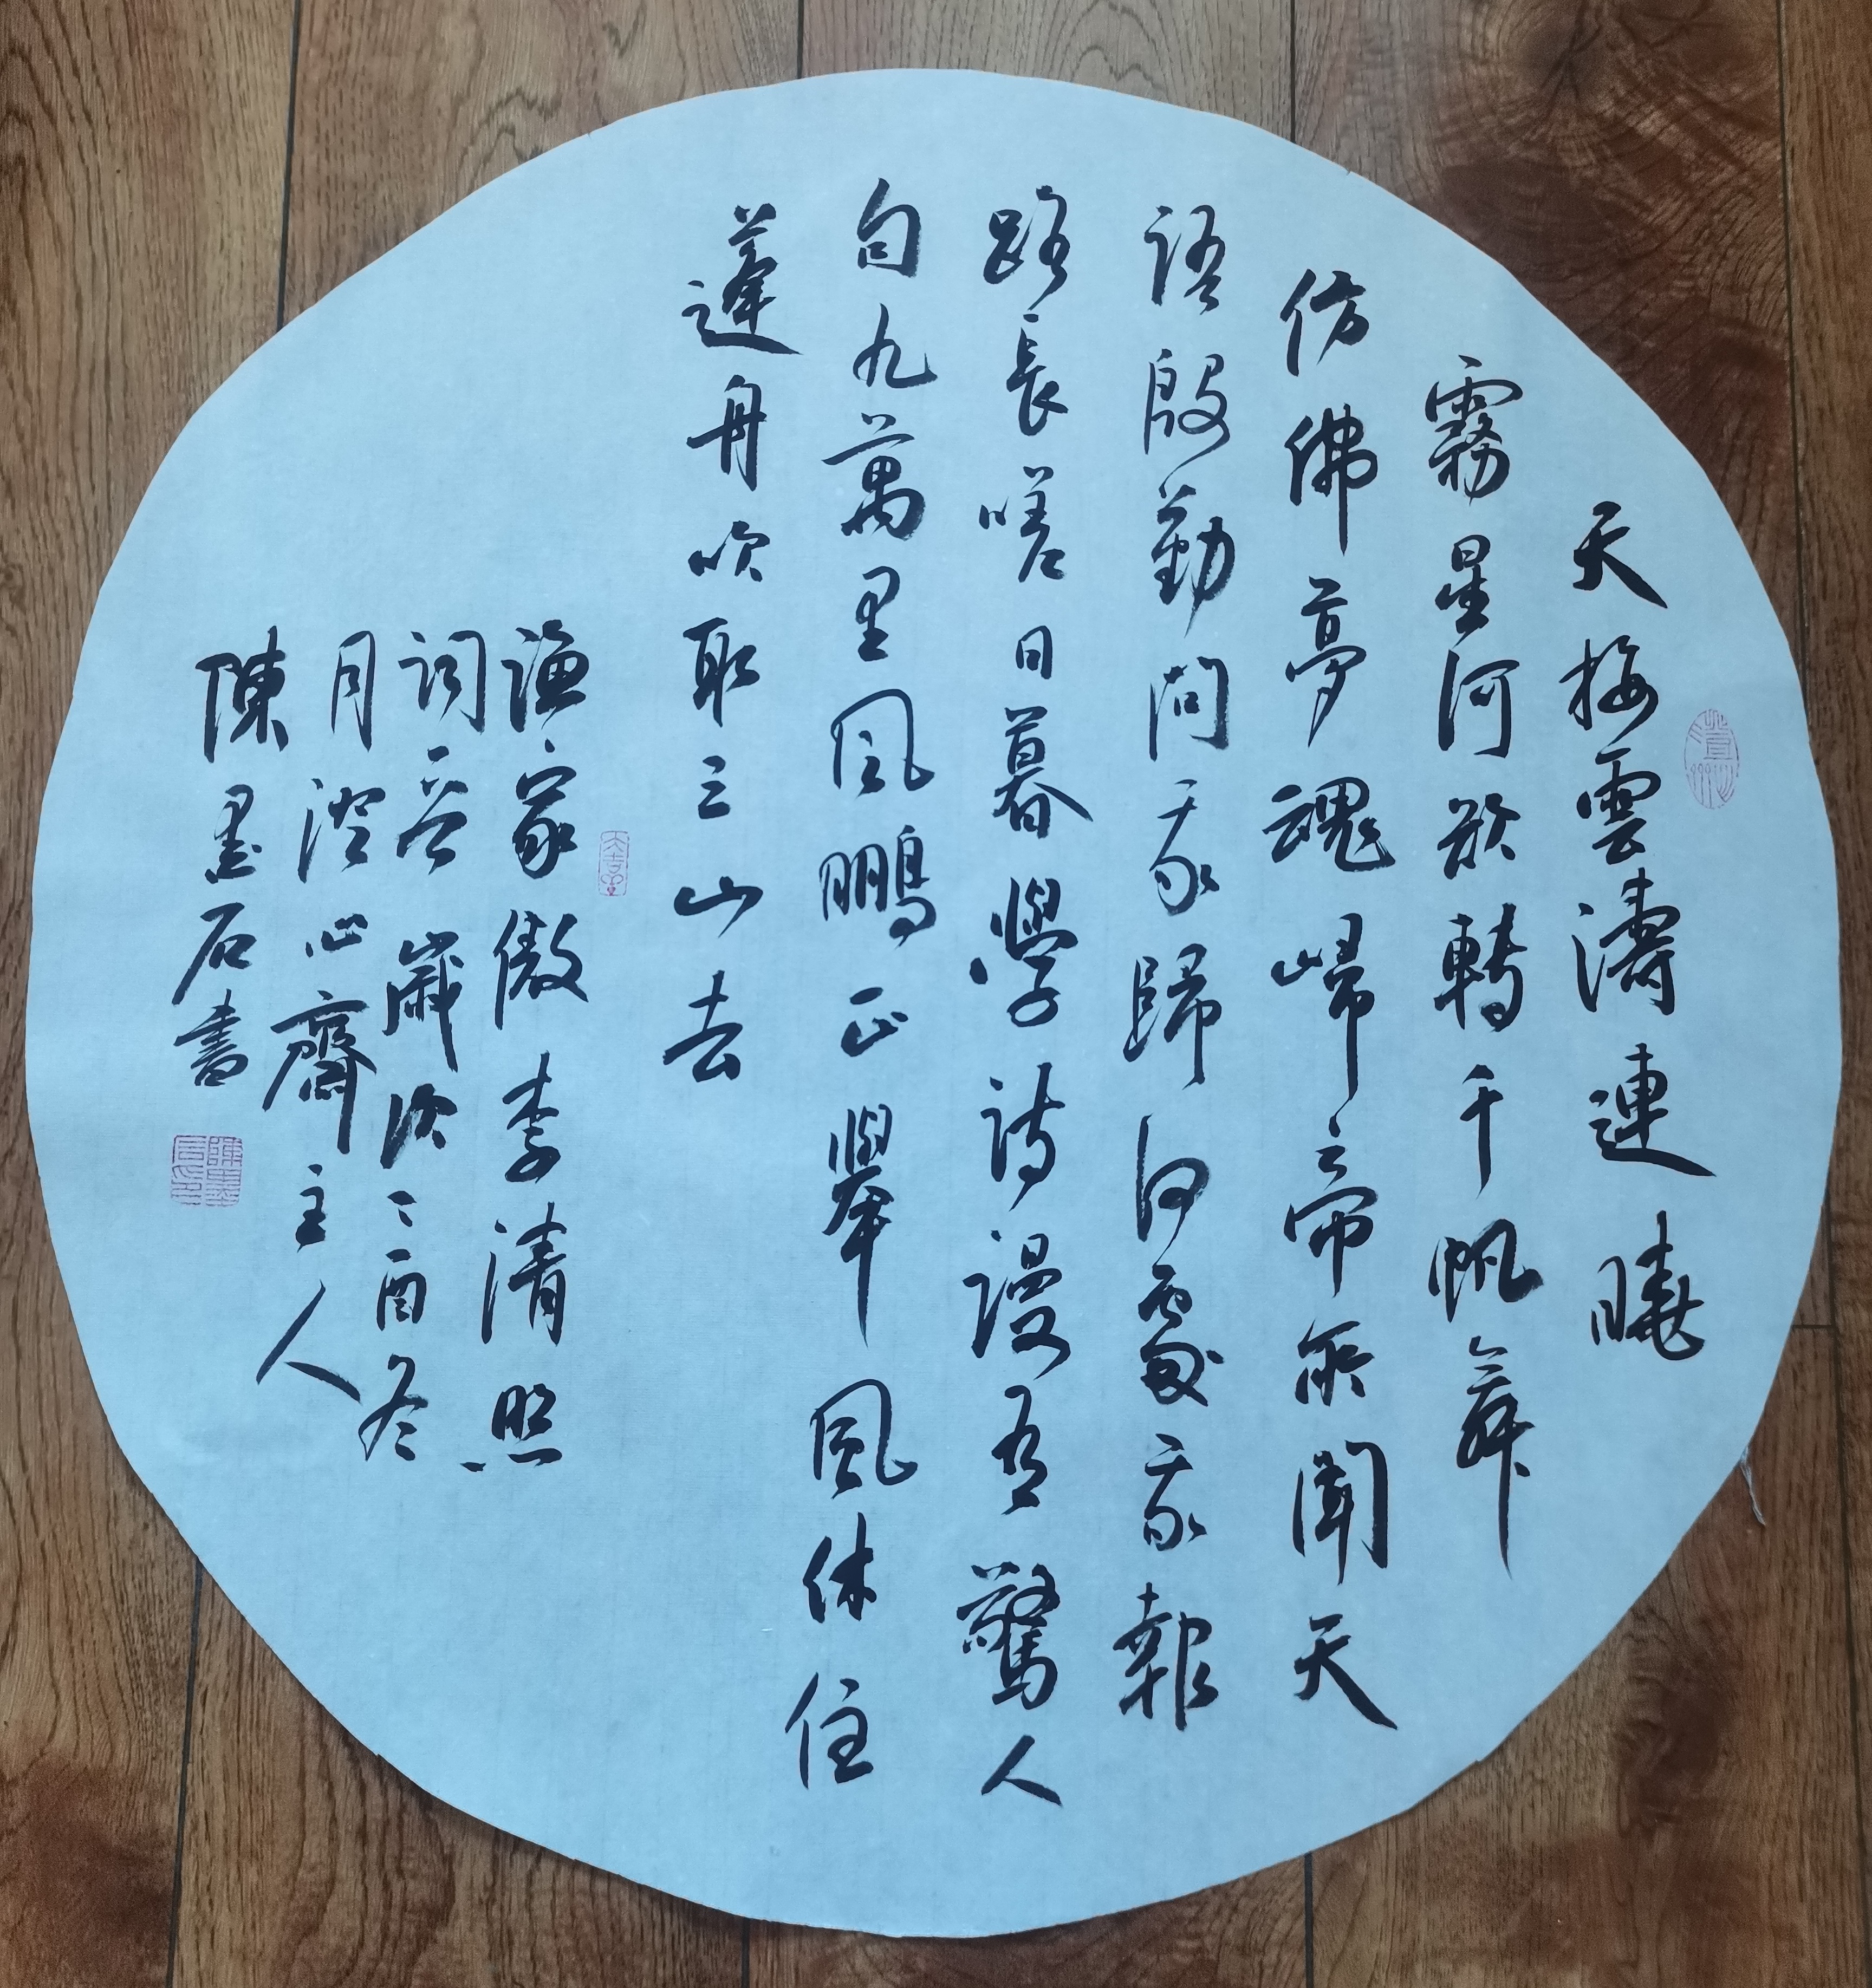 天接雲濤連曉
霧星河欲轉千帆舞
仿佛夢魂歸帝所聞天
語殷勤問我歸何處我報
路長嗟日暮學詩謾有驚人
句九萬里風鵬正舉風休住
蓬舟吹取三山去
漁家傲李清照
詞歲次酉冬
月澄心齋主人
陳墨石書